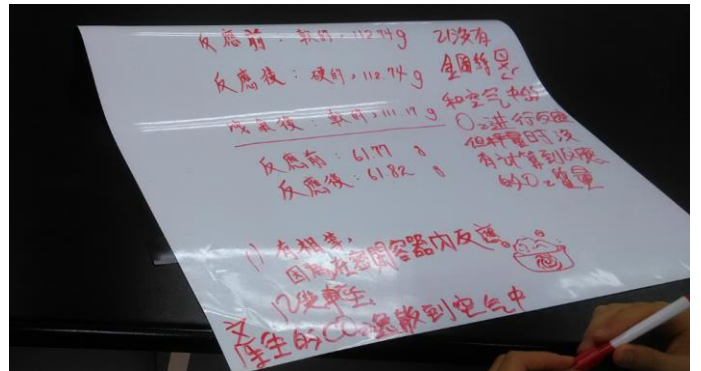 反應前：軟的，112.74g
反應後：硬的，112.74g
洩氣後：軟的，111.17g
反應前：61.77 g
反應後：61.82 g
2)沒有
金屬綿是
和空气中的
O₂進行反應
但秤量日时沒
有計算到反應
的O₂質量
1)有相等，
因為在密閉容器內反應。
12變輕生
產生的CO₂逸散到空气中